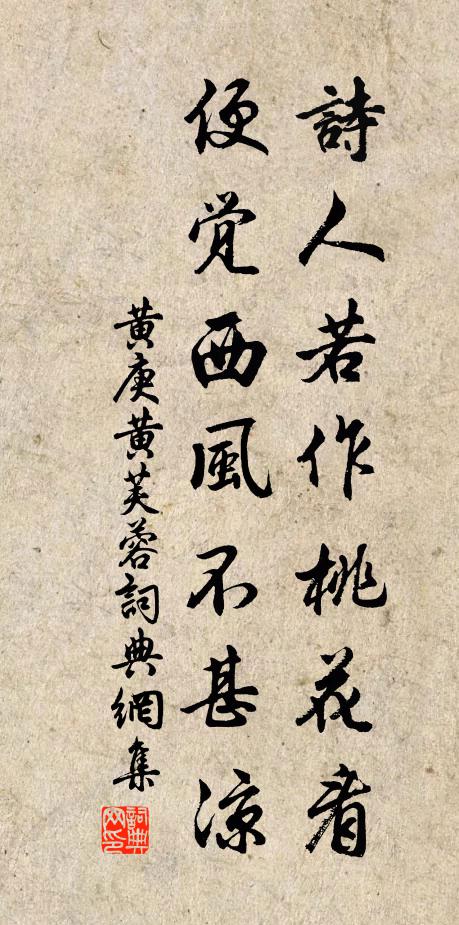 詩人若作桃花看
便覺西風不甚涼
黃庚黃芙蓉詞典網集
詞典网印